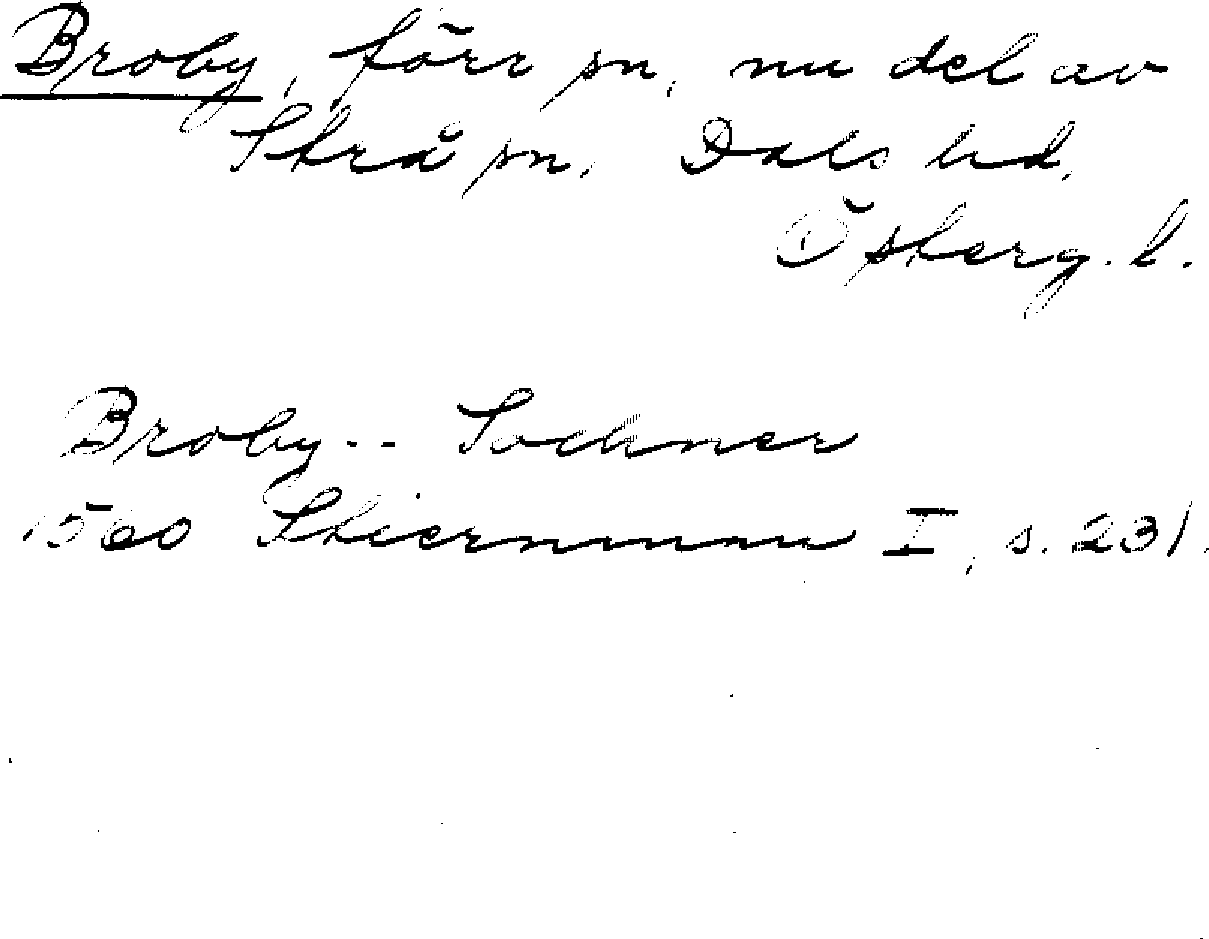 Broby, förr sn, nu del av
Strå sn, Dals hd,
Österg. l.
Broby -- Sochner
1560 Stiernman I, s. 231.